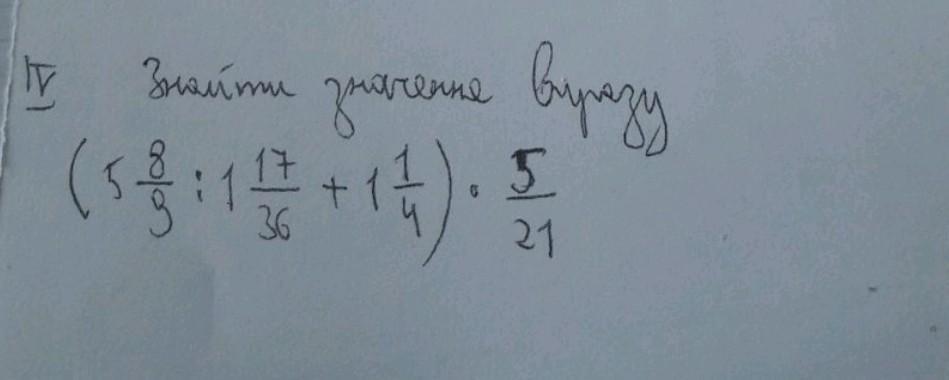 IV Знайти значення виразу
(5 8/9 : 1 17/36 + 1 1/4) · 5/21